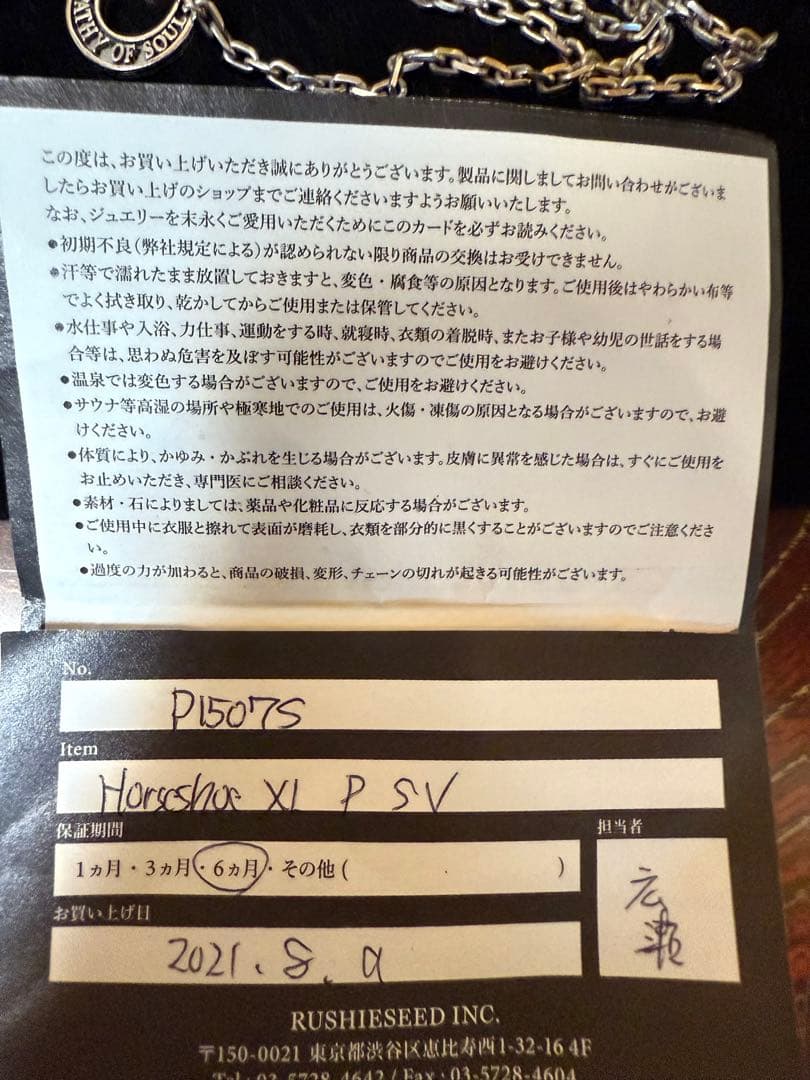 PATHY OF SOUL
この度は、お買い上げいただき誠にありがとうございます。製品に関しましてお問い合わせがございま
したらお買い上げのショップまでご連絡くださいますようお願いいたします。
なお、ジュエリーを末永くご愛用いただくためにこのカードを必ずお読みください。
●初期不良(弊社規定による)が認められない限り商品の交換はお受けできません。
●汗等で濡れたまま放置しておきますと、変色・腐食等の原因となります。ご使用後はやわらかい布等
でよく拭き取り、乾かしてからご使用または保管してください。
●水仕事や入浴、力仕事、運動をする時、就寝時、衣類の着脱時、またお子様や幼児の世話をする場
合等は、思わぬ危害を及ぼす可能性がございますのでご使用をお避けください。
●温泉では変色する場合がございますので、ご使用をお避けください。
●サウナ等高湿の場所や極寒地でのご使用は、火傷・凍傷の原因となる場合がございますので、お避
けください。
●体質により、かゆみ・かぶれを生じる場合がございます。皮膚に異常を感じた場合は、すぐにご使用を
お止めいただき、専門医にご相談ください。
●素材・石によりましては、薬品や化粧品に反応する場合がございます。
●ご使用中に衣服と擦れて表面が磨耗し、衣類を部分的に黒くすることがございますのでご注意くださ
い。
●過度の力が加わると、商品の破損、変形、チェーンの切れが起きる可能性がございます。
No.
P1507S
Item
Horseshoe XL P SV
保証期間
担当者
1ヵ月・3ヵ月・6ヵ月・その他( )
広瀬
お買い上げ日
2021. 8. 9
RUSHIESEED INC.
〒150-0021 東京都渋谷区恵比寿西1-32-16 4F
Tel : 03-5728-4642 / Fax : 03-5728-4604